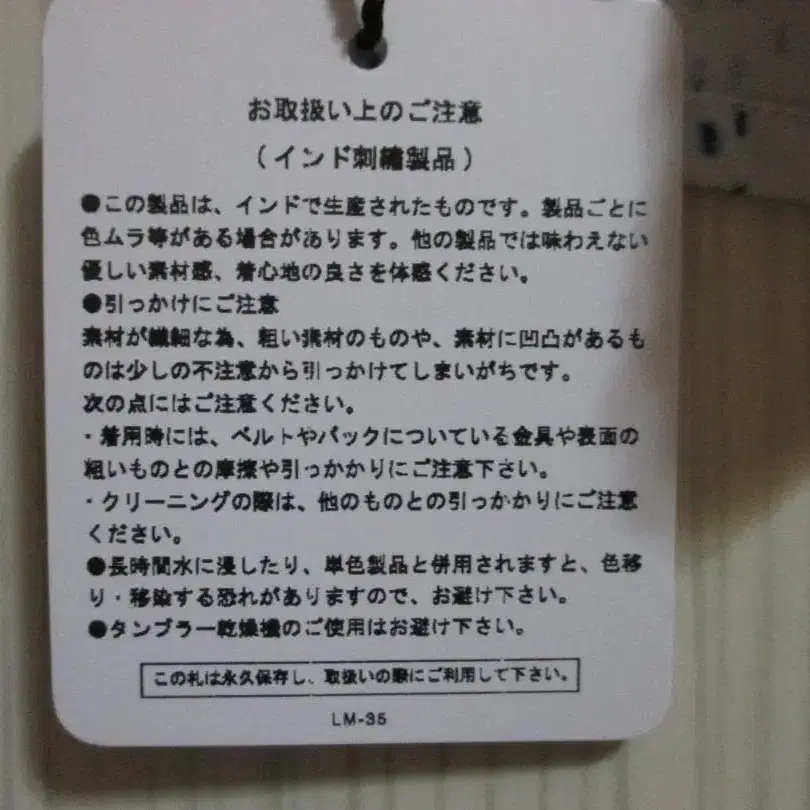 お取扱い上のご注意
（インド刺繍製品）
●この製品は、インドで生産されたものです。製品ごとに
色ムラ等がある場合があります。他の製品では味わえない
優しい素材感、着心地の良さを体感ください。
●引っかけにご注意
素材が繊細な為、粗い素材のものや、素材に凹凸があるも
のは少しの不注意から引っかけてしまいがちです。
次の点にはご注意ください。
・着用時には、ベルトやバックについている金具や表面の
粗いものとの摩擦や引っかかりにご注意下さい。
・クリーニングの際は、他のものとの引っかかりにご注意
ください。
●長時間水に浸したり、単色製品と併用されますと、色移
り・移染する恐れがありますので、お避け下さい。
●タンブラー乾燥機のご使用はお避け下さい。
この札は永久保存し、取扱いの際にご利用して下さい。
LM-35